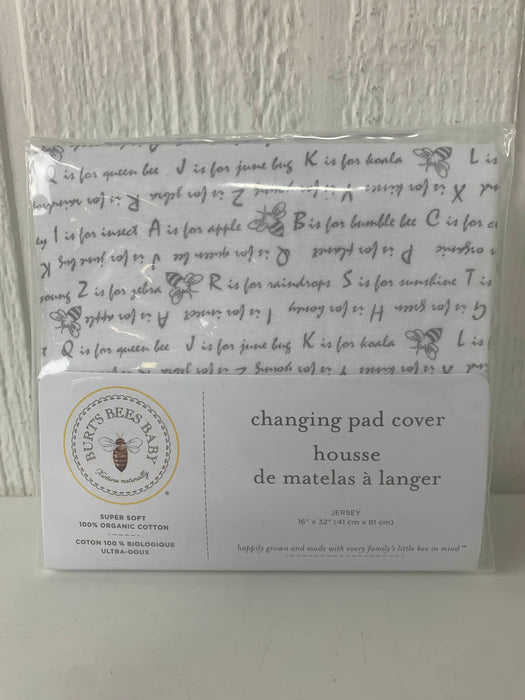 Q is for queen bee J is for june bug K is for koala L is
I is for insect A is for apple B is for bumble bee C is for
organic P is for planet Q is for queen bee J is for june bug K
young Z is for zebra R is for raindrops S is for sunshine T is
G is for green H is for honey I is for insect A is for apple
Q is for queen bee J is for june bug K is for koala L is
BURT'S BEES BABY
Nurture naturally
®
SUPER SOFT
100% ORGANIC COTTON
COTON 100 % BIOLOGIQUE
ULTRA-DOUX
changing pad cover
housse
de matelas à langer
JERSEY
16" x 32" (41 cm x 81 cm)
happily grown and made with every family's little bee in mind™